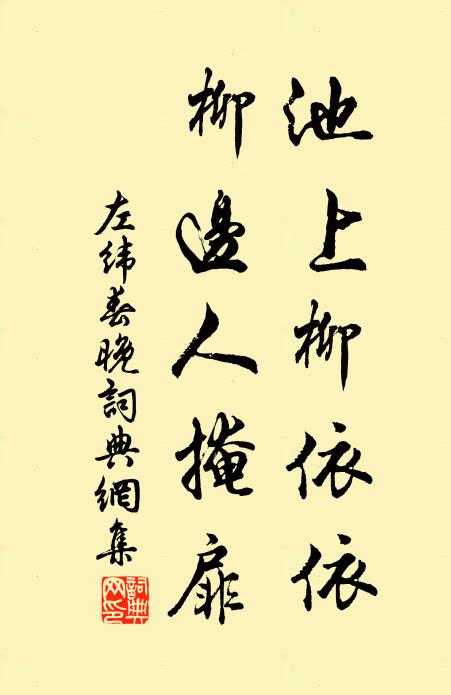 池上柳依依
柳邊人掩扉
左緯春晚詞典網集
詞典網印